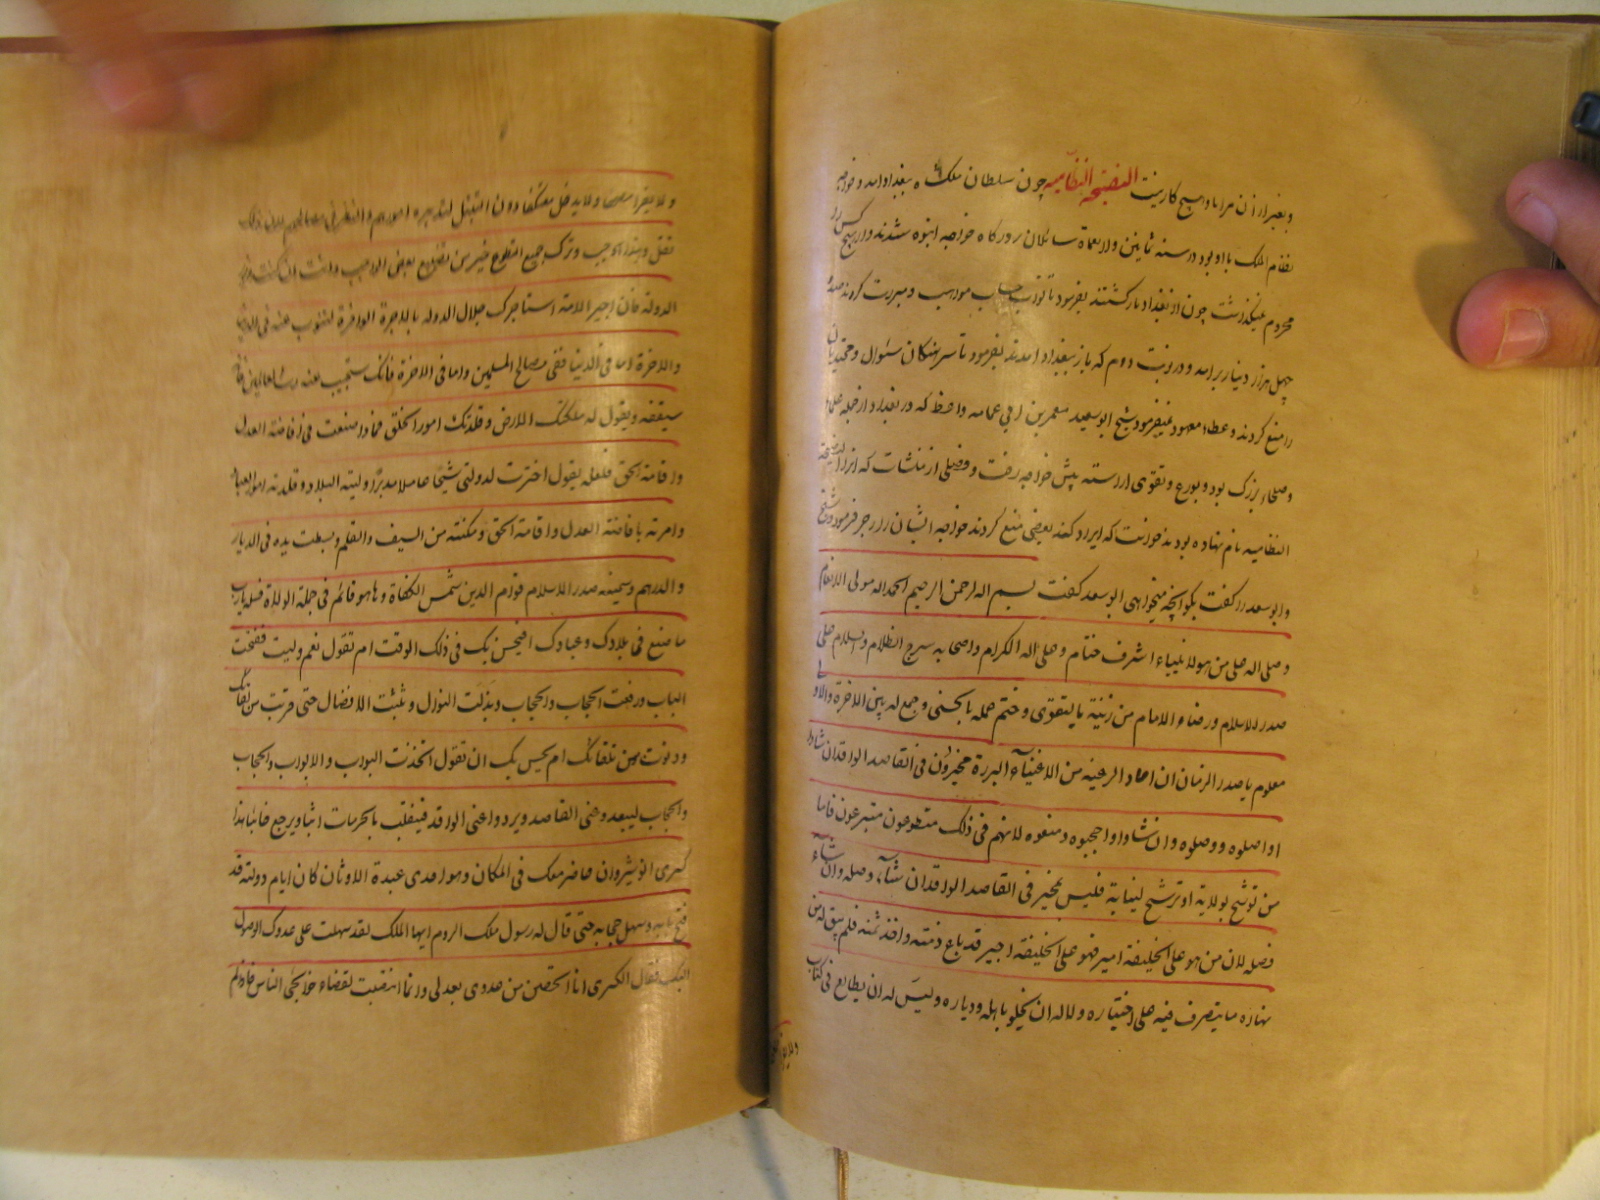 و بغیر از آن مرا با او هیچ کار نیست النصیحة النظامیه چون سلطان ملک شاه ببغداد آمد و خواجه
نظام الملک با او بود در سنه ثمانین و اربعمائة سائلان بدرگاه خواجه انبوه شدند و او هیچ کس را
محروم نمیگذاشت چون از بغداد بازگشتند بفرمود تا نواب حساب مواهب و مبرت کردند صد و
چهل هزار دینار برآمد و در نوبت دوم که باز ببغداد آمدند بفرمود تا سرهنگان سئوال و مجتدیان
را منع کردند و عطاء معهود نمیفرمود شیخ ابو سعید معمر بن ابی عمامه واعظ که در بغداد از جمله علماء
و صلحاء بزرگ بود و بورع و تقوی آراسته پیش خواجه رفت و فصلی از منشآت که آنرا النصیحة
النظامیه نام نهاده بود بدو خواست که ایراد کند بعضی منع کردند خواجه ایشان را زجر فرمود و شیخ
ابو سعد را گفت بگو آنچه میخواهی ابو سعد گفت بسم الله الرحمن الرحیم الحمد لله مولی الانعام
و صلی الله علی من هو للانبیاء اشرف ختام و علی آله الکرام و اصحابه سرج الظلام و السلام علی
صدر الاسلام و رضاء الامام من زینة بالتقوی و ختم عمله بالحسنی و جمع له بین الاخرة و الاولی
معلوم یا صدر الزمان ان احاد الرعیه من الاغنیاء البررة مخیرون فی القاصد الوافدان شاؤا
اواصلوه و وصلوه و ان شاؤا و احجبوه و منعوه لانهم فی ذلک متطوعون متبرعون فاما
من توشح بولایة او ترشح لنیابة فلیس بمخیر فی القاصد الوافدان شاء وصله و ان شاء
فصله لان من هو علی الخلیفة امیر فهو علی الخلیقة اجیر قد باع زمنه و اخذ ثمنه فلم یبق له من
نهاره ما یتصرف فیه علی اختیاره و لا له ان یخلو باهله و دیاره و لیس له ان یطالع فی کتاب
و لا یقرا
و لا یدخل معتکفا دون التبتل لتدبیره امورهم و النظر فی مصالحهم لان ذلک
نفل و هذا واجب و ترک جمیع التطوع خیر من تضییع بعض الواجب و انت ان کنت وزیر
الدولة فانت اجیر الامة استاجرک جلال الدوله بالاجرة الوافرة لتنوب عنه فی الدنیا
و الاخرة اما فی الدنیا ففی مصالح المسلمین و اما فی الاخرة فانک ستجیب عنه رب العالمین فانه
سیقفه و یقول له ملکتک الارض و قلدتک امور الخلق فماذا صنعت فی افاضة العدل
و اقامة الحق فلعله یقول اخترت لدولتی شیخا عاملا مدبرا و لیته البلاد و قلدته امور العباد
و امرته بافاضة العدل و اقامة الحق و مکنته من السیف و القلم و بسطت یده فی الدینار
و الدرهم و سمیته صدر الاسلام قوام الدین شمس الکفاة و ها هو قائم فی جملة الولاة فسله یارب
ما صنع فی بلادک و عبادک افیحسن بک فی ذلک الوقت ام تقول نعم ولیت ففتحت
الباب و رفعت الحجاب و الحجاب و بذلت النوال و ثبثت الافضال حتی قربت من لقائک
و دنوت من تلقائک ام یحسن بک ان تقول اتخذت البواب و الابواب و الحجاب
و الحجاب لیبعدو عنی القاصد و یردوا عنی الوافد فینقلب بالحرمات اثبا و یرجع خائبا هذا
کسری انوشیروان حاضر معک فی المکان و هو احدی عبدة الاوثان کان ایام دولته قد
فتح بابه و سهل حجابه حتی قال له رسول ملک الروم ایها الملک لقد سهلت علی عدوک الوصول
الیک فقال الکسری انا اتحصن من عدوی بعدلی و انما انتصبت لقضاء حوائجی الناس فاذا لم